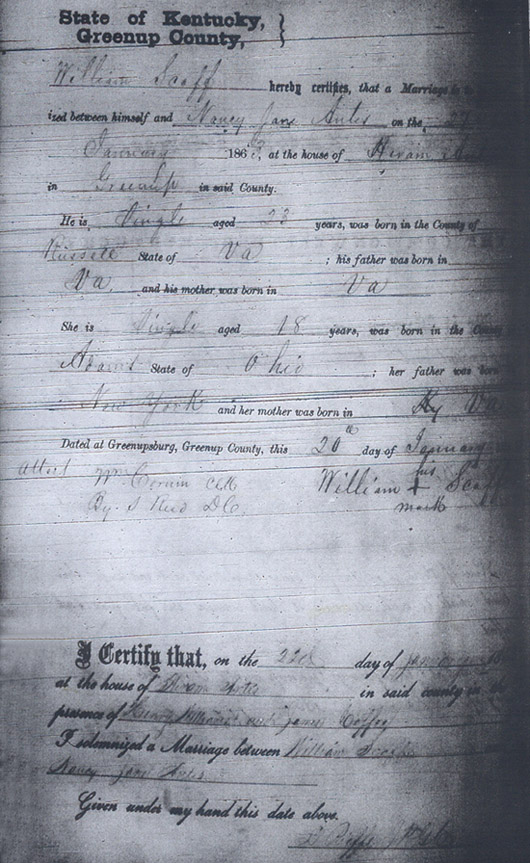 State of Kentucky,
Greenup County,
William Scaff hereby certifies, that a Marriage is to
ized between himself and Nancy Jane Antes on the
January 186 , at the house of Hiram
in Greenup in said County.
He is Single aged 23 years, was born in the County of
Russell State of Va ; his father was born in
Va. and his mother was born in Va
She is Single aged 18 years, was born in the County
Adams State of Ohio ; her father was born
New York and her mother was born in Va
Dated at Greenupsburg, Greenup County, this 20th day of January
Attest Wm Corum Clk William + Scaff
his
By. J Reid D.C. mark
I Certify that, on the 22d day of January
at the house of Hiram Antes in said county in the
presence of Henry and James Coffey
I solemnized a Marriage between William
Nancy Jane Antes
Given under my hand this date above.